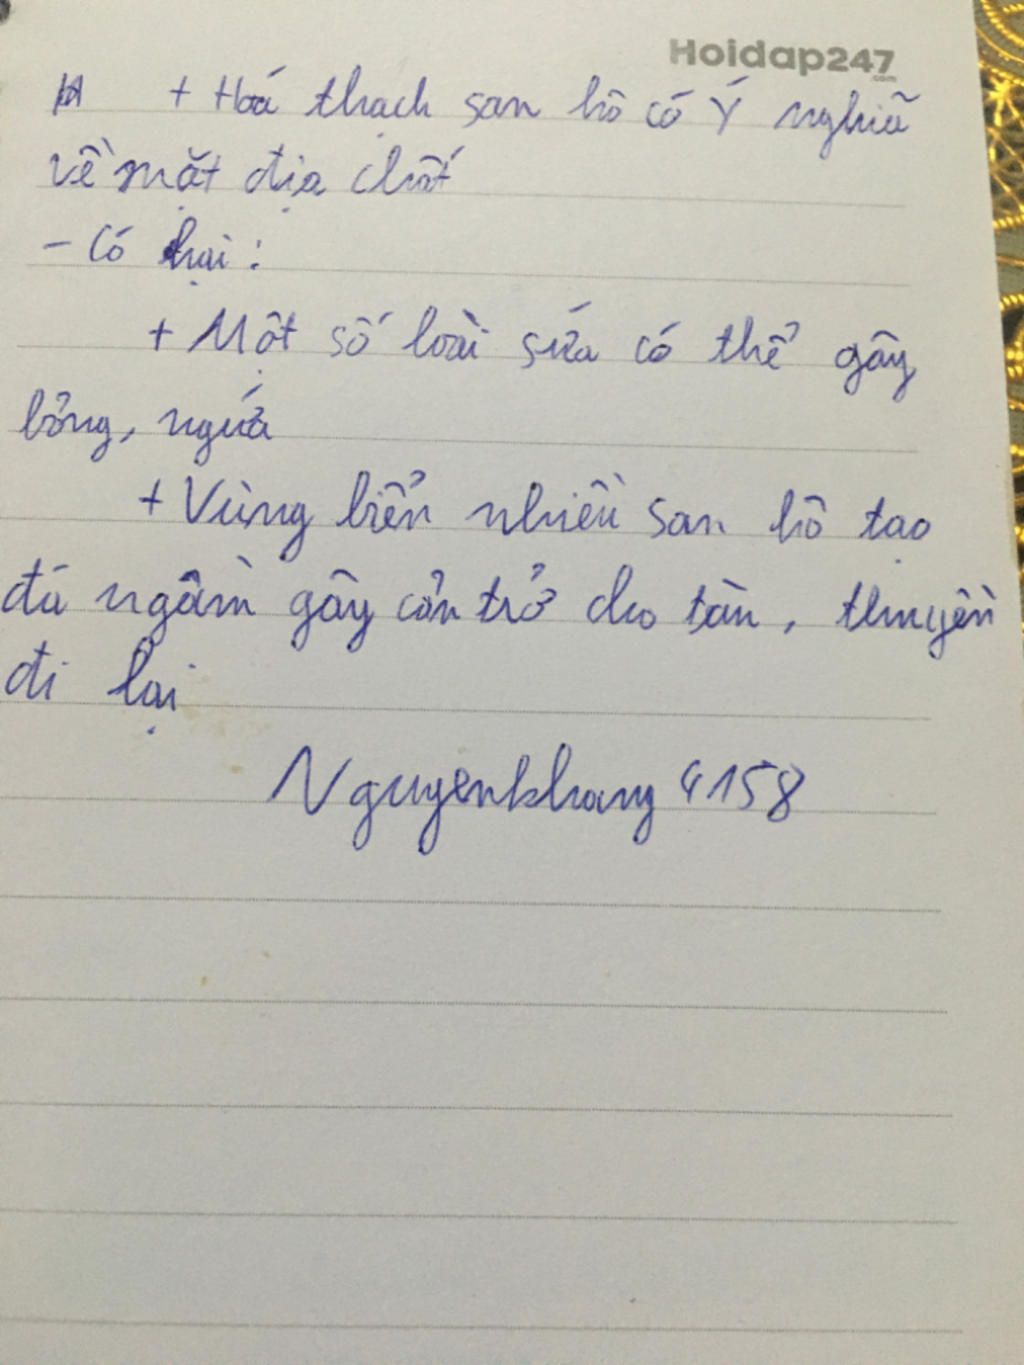 Hoidap247
.com
+ Hoá thạch san hô có ý nghiã
về mặt địa chất
- Có hại:
+ Một số loài sứa có thể gây
bỏng, ngứa
+ Vùng biển nhiều san hô tạo
đá ngầm gây cản trở cho tàn, thuyền
đi lại
Nguyenkhang 4158